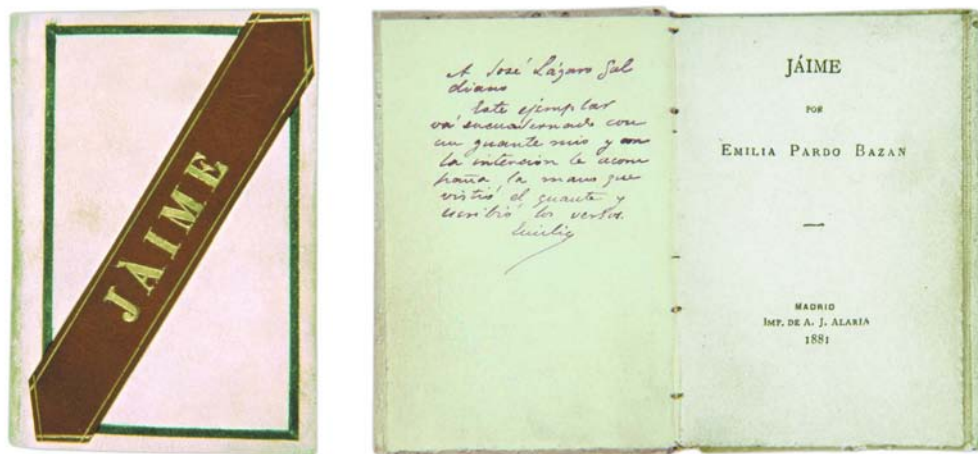 JÀIME
A José Lázaro Gal
diano
Este ejemplar
vá encuadernado con
un guante mio y con
la intencion le acom
paña la mano que
vistió el guante y
escribió los versos.
Emilia
JÁIME
POR
EMILIA PARDO BAZAN
MADRID
IMP. DE A. J. ALARIA
1881